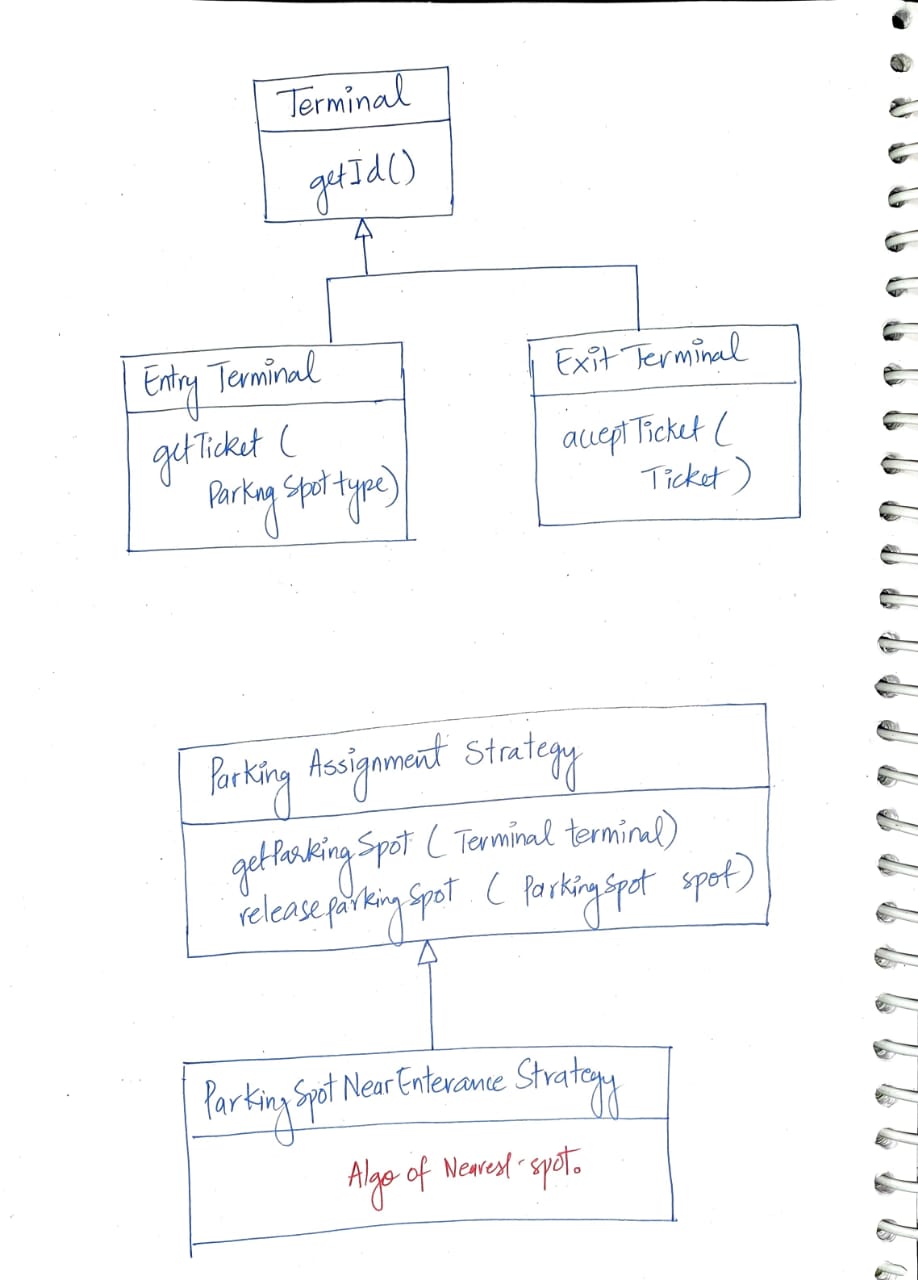 Terminal
getId()
Entry Terminal
getTicket (
Parkng Spot type)
Exit Terminal
acceptTicket (
Ticket )
Parking Assignment Strategy
getParkingSpot ( Terminal terminal)
releaseparkingSpot. ( ParkingSpot spot)
ParkingSpotNearEnterance Strategy
Algo of Nearest-spot.